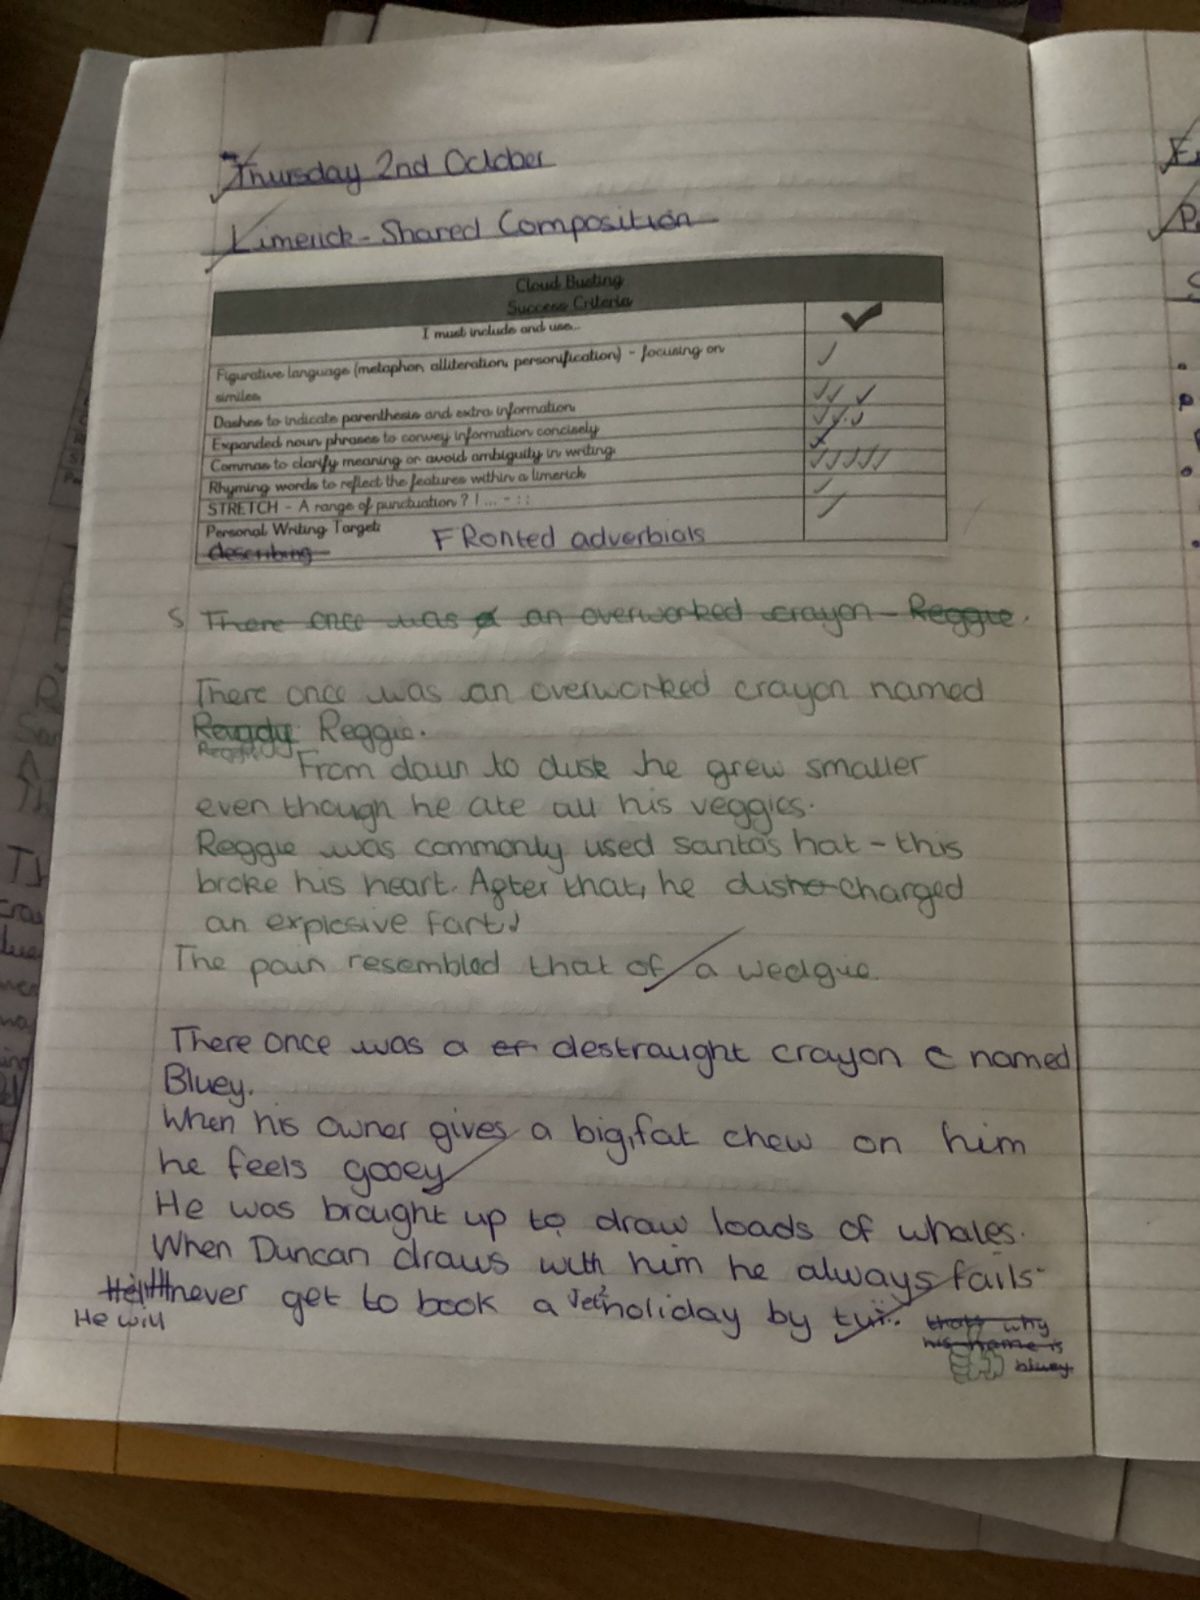 Thursday 2nd October
Limerick - Shared Composition
Cloud Busting
Success Criteria
I must include and use...
Figurative language (metaphor, alliteration, personification) - focusing on
similes
Dashes to indicate parenthesis and extra information
Expanded noun phrases to convey information concisely
Commas to clarify meaning or avoid ambiguity in writing.
Rhyming words to reflect the features within a limerick
STRETCH - A range of punctuation ? ! ... - : ;
Personal Writing Target:
describing FRonted adverbials
S There once was a an overworked crayon - Reggie.
There once was an overworked crayon named
Reggie.
Reggie
From daun to dusk he grew smaller
even though he ate all his veggies.
Reggie was commonly used santa's hat - this
broke his heart. After that, he discharged
an explosive fart!
The pain resembled that of a wedgie.
There once was a destraught crayon c named
Bluey.
When his owner gives a big, fat chew on him
he feels gooey
He was brought up to draw loads of whales.
When Duncan draws with him he always fails-
never get to book a Jet2 holiday by tui.
He will
why
his name is
bluey.